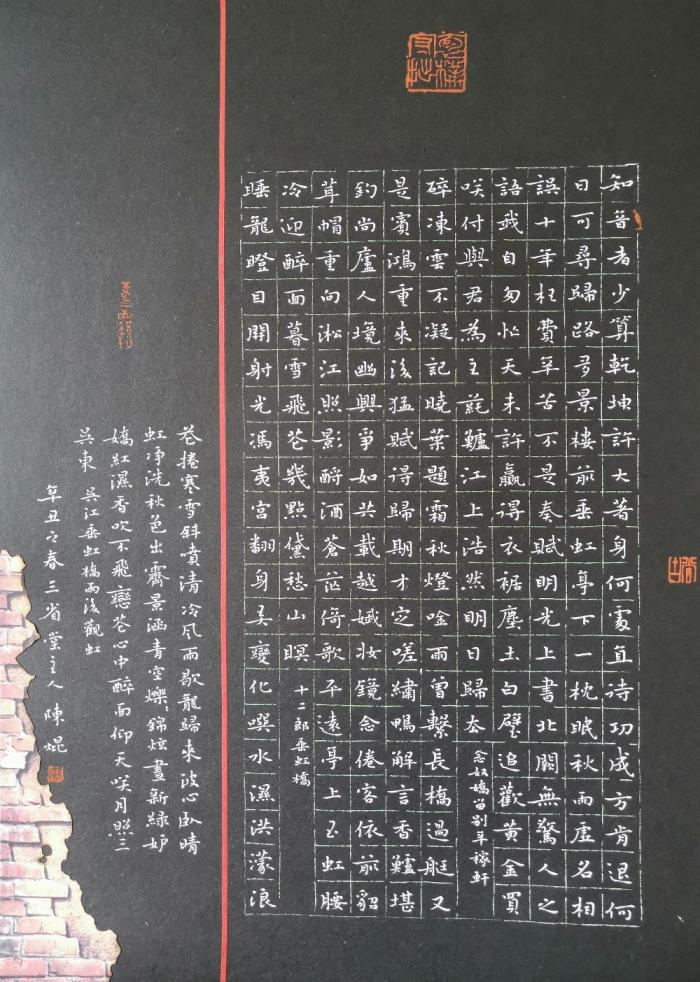 知音者少算乾坤許大著身何處直待功成方肯退何
日可尋歸路多景樓前垂虹亭下一枕眠秋雨虛名相
誤十年枉費辛苦不是奏賦明光上書北闕無驚人之
語我自匆忙天未許贏得衣裾塵土白璧追歡黃金買
笑付與君為主蓴鱸江上浩然明日歸去 念奴嬌留別辛稼軒
碎凍雲不凝記曉葉題霜秋燈吟雨曾繫長橋過艇又
是賓鴻重來後猛賦得歸期才定嗟繡鴨解言香鱸堪
釣尚廬人境幽興爭如共載越娥妝鏡念倦客依前貂
茸帽重向淞江照影酹酒蒼茫倚歌平遠亭上玉虹腰
冷迎醉面暮雪飛花幾點黛愁山暝 十二郎垂虹橋
睡龍瞪目開射光馮夷宮翻身異變化噀水濕洪濛浪
花捲寒雪斜噴清冷風雨歇龍歸來波心臥晴
虹淨洗秋色出霽景涵青空爍錦炫畫新綠妒
嬌紅濕香吹不飛戀花心中醉面仰天笑月照三
吳東 吳江垂虹橋雨後觀虹
辛丑之春三省堂主人陳焜